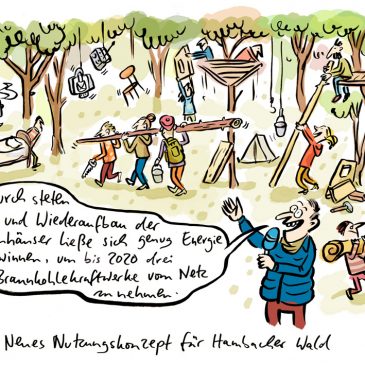 durch steten
und Wiederaufbau der
nhäuser ließe sich genug Energie
winnen, um bis 2020 drei
Braunkohlekraftwerke vom Netz
zu nehmen.
Neues Nutzungskonzept für Hambacher Wald